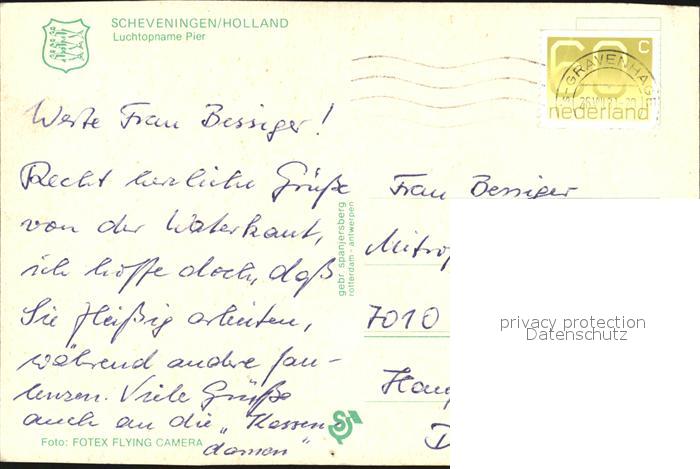 SCHEVENINGEN/HOLLAND
Luchtopname Pier
60 c
nederland
'S-GRAVENHAGE
Werte Frau Bessiger!
Recht herzliche Grüße
von der Waterkant,
ich hoffe doch, daß
Sie fleißig arbeiten,
während andere fau-
lenzen. Viele Grüße
auch an die „Kassen
damen"
gebr. spanjersberg
rotterdam - antwerpen
Frau Bessiger
7010
privacy protection
Datenschutz
Foto: FOTEX FLYING CAMERA